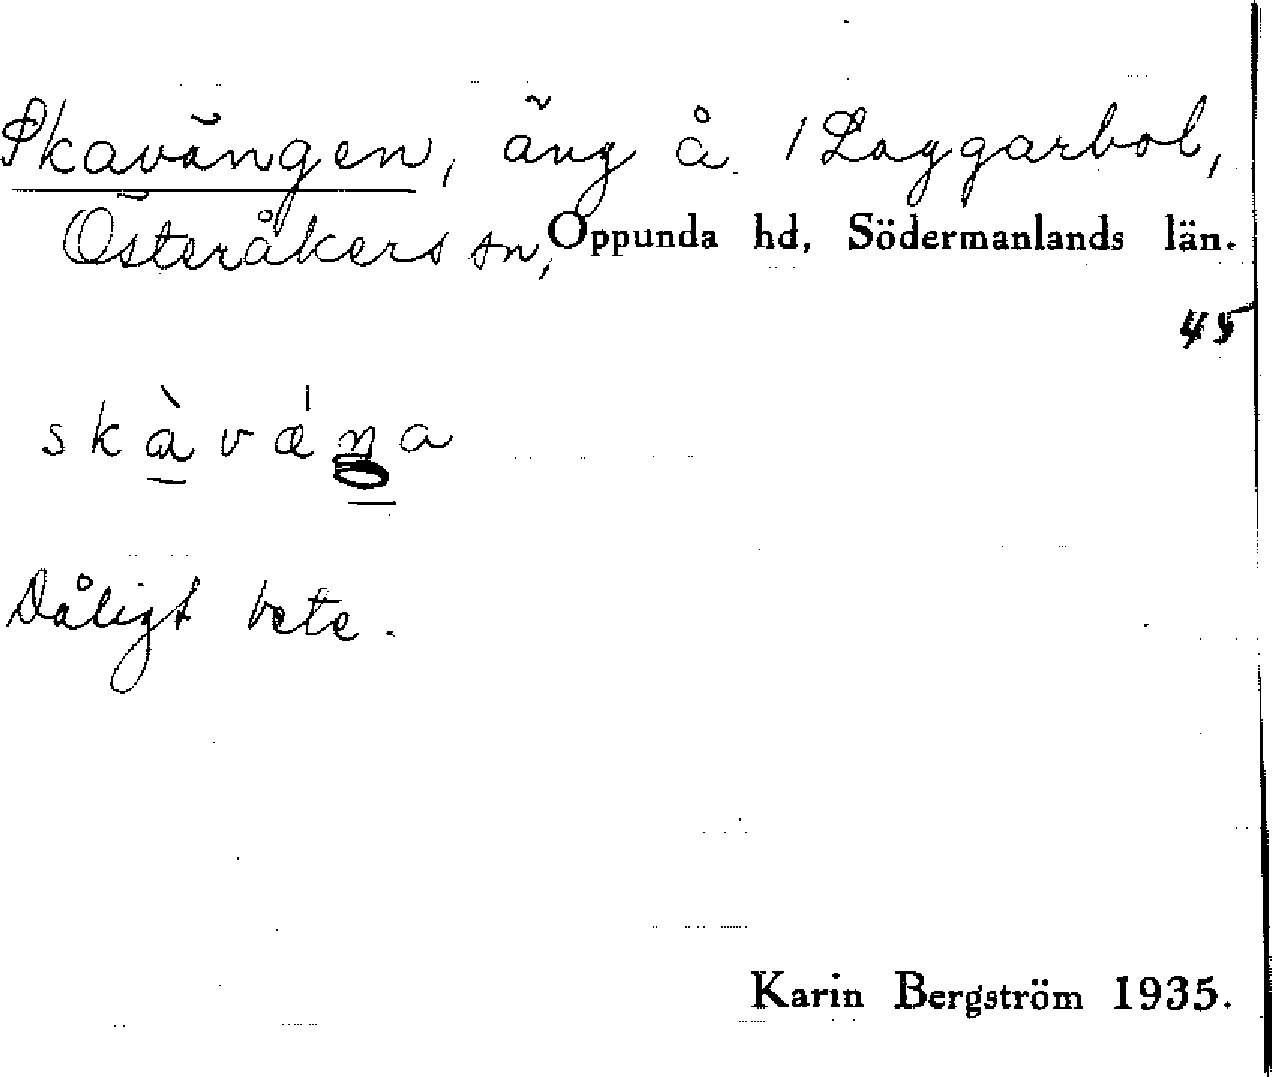 Skavängen, äng å 1 Laggarbol,
Österåkers sn, Oppunda hd, Södermanlands län.
45
Dåligt bete.
Karin Bergström 1935.